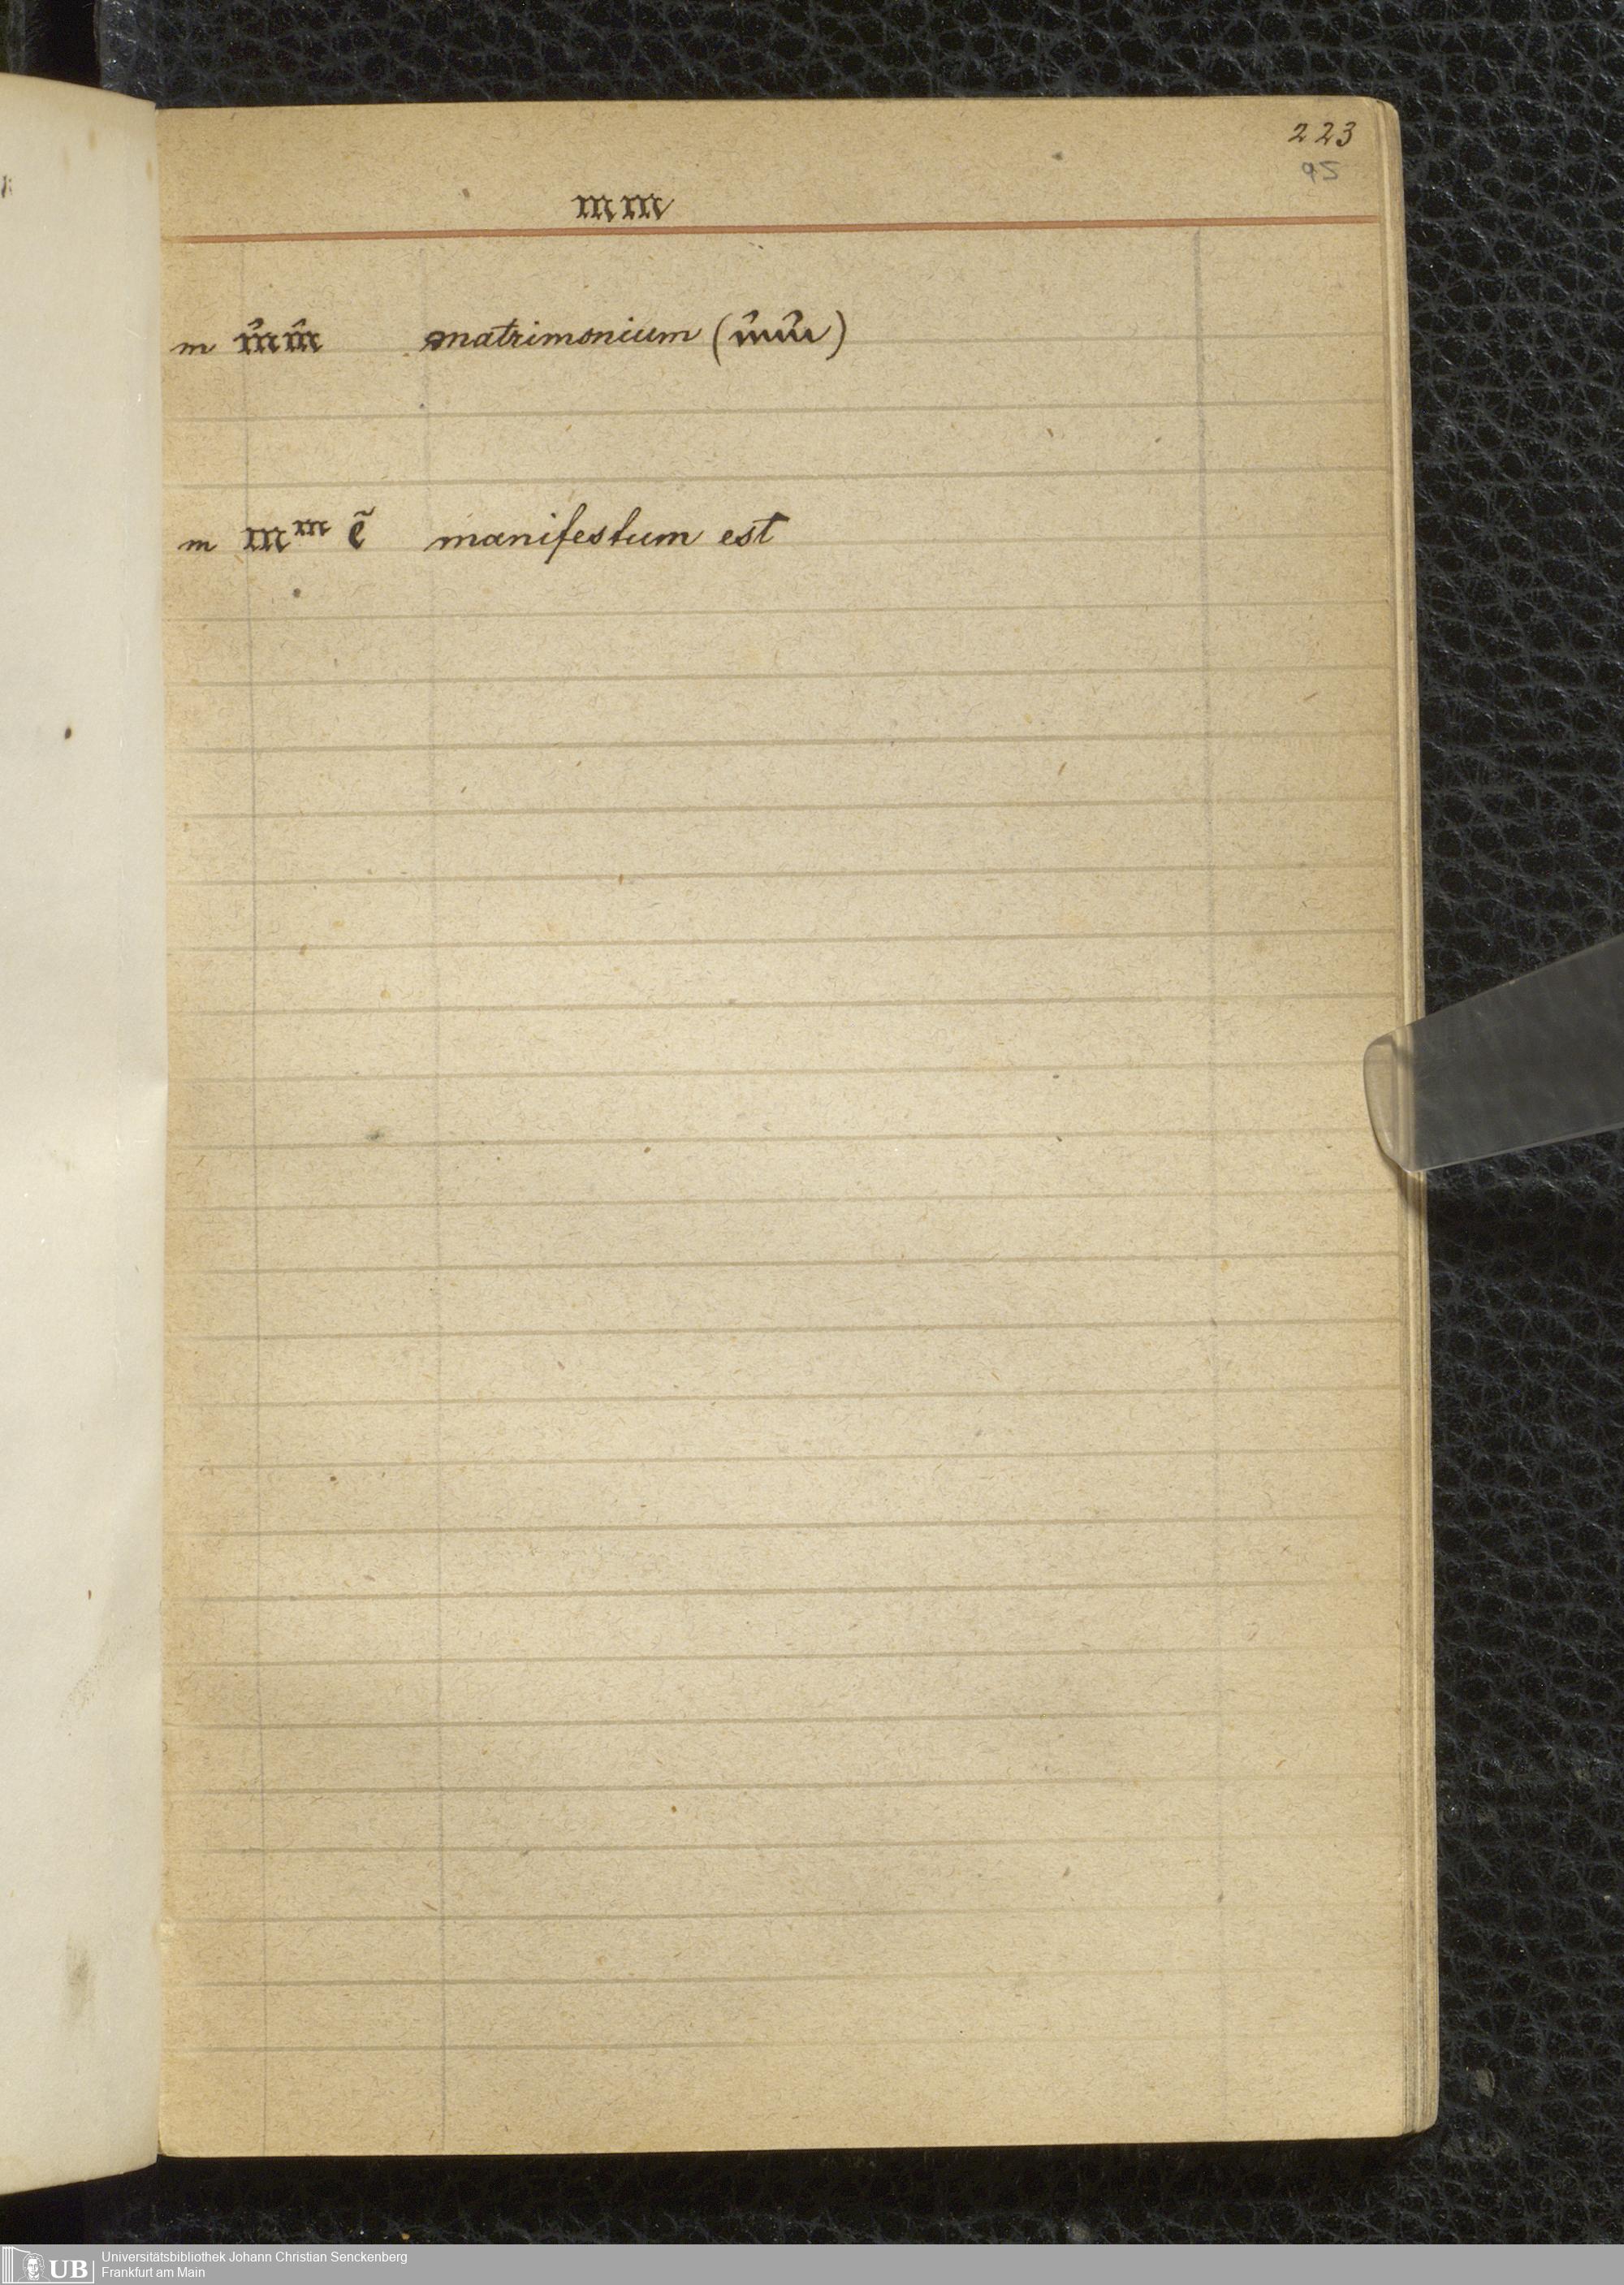 223
95
mm
m m̂m̂ matrimonium (m̂m̂)
m mᵐ ẽ manifestum est
UB Universitätsbibliothek Johann Christian Senckenberg
Frankfurt am Main